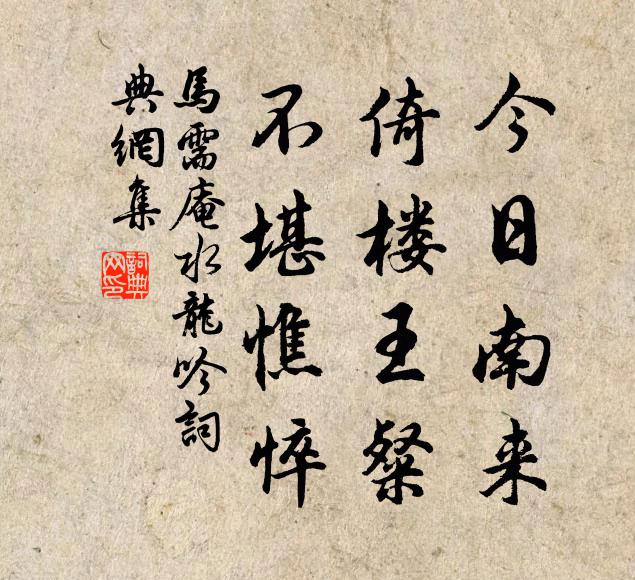 今日南来
倚楼王粲
不堪憔悴
馬需庵水龍吟詞
典網集
詞典网印